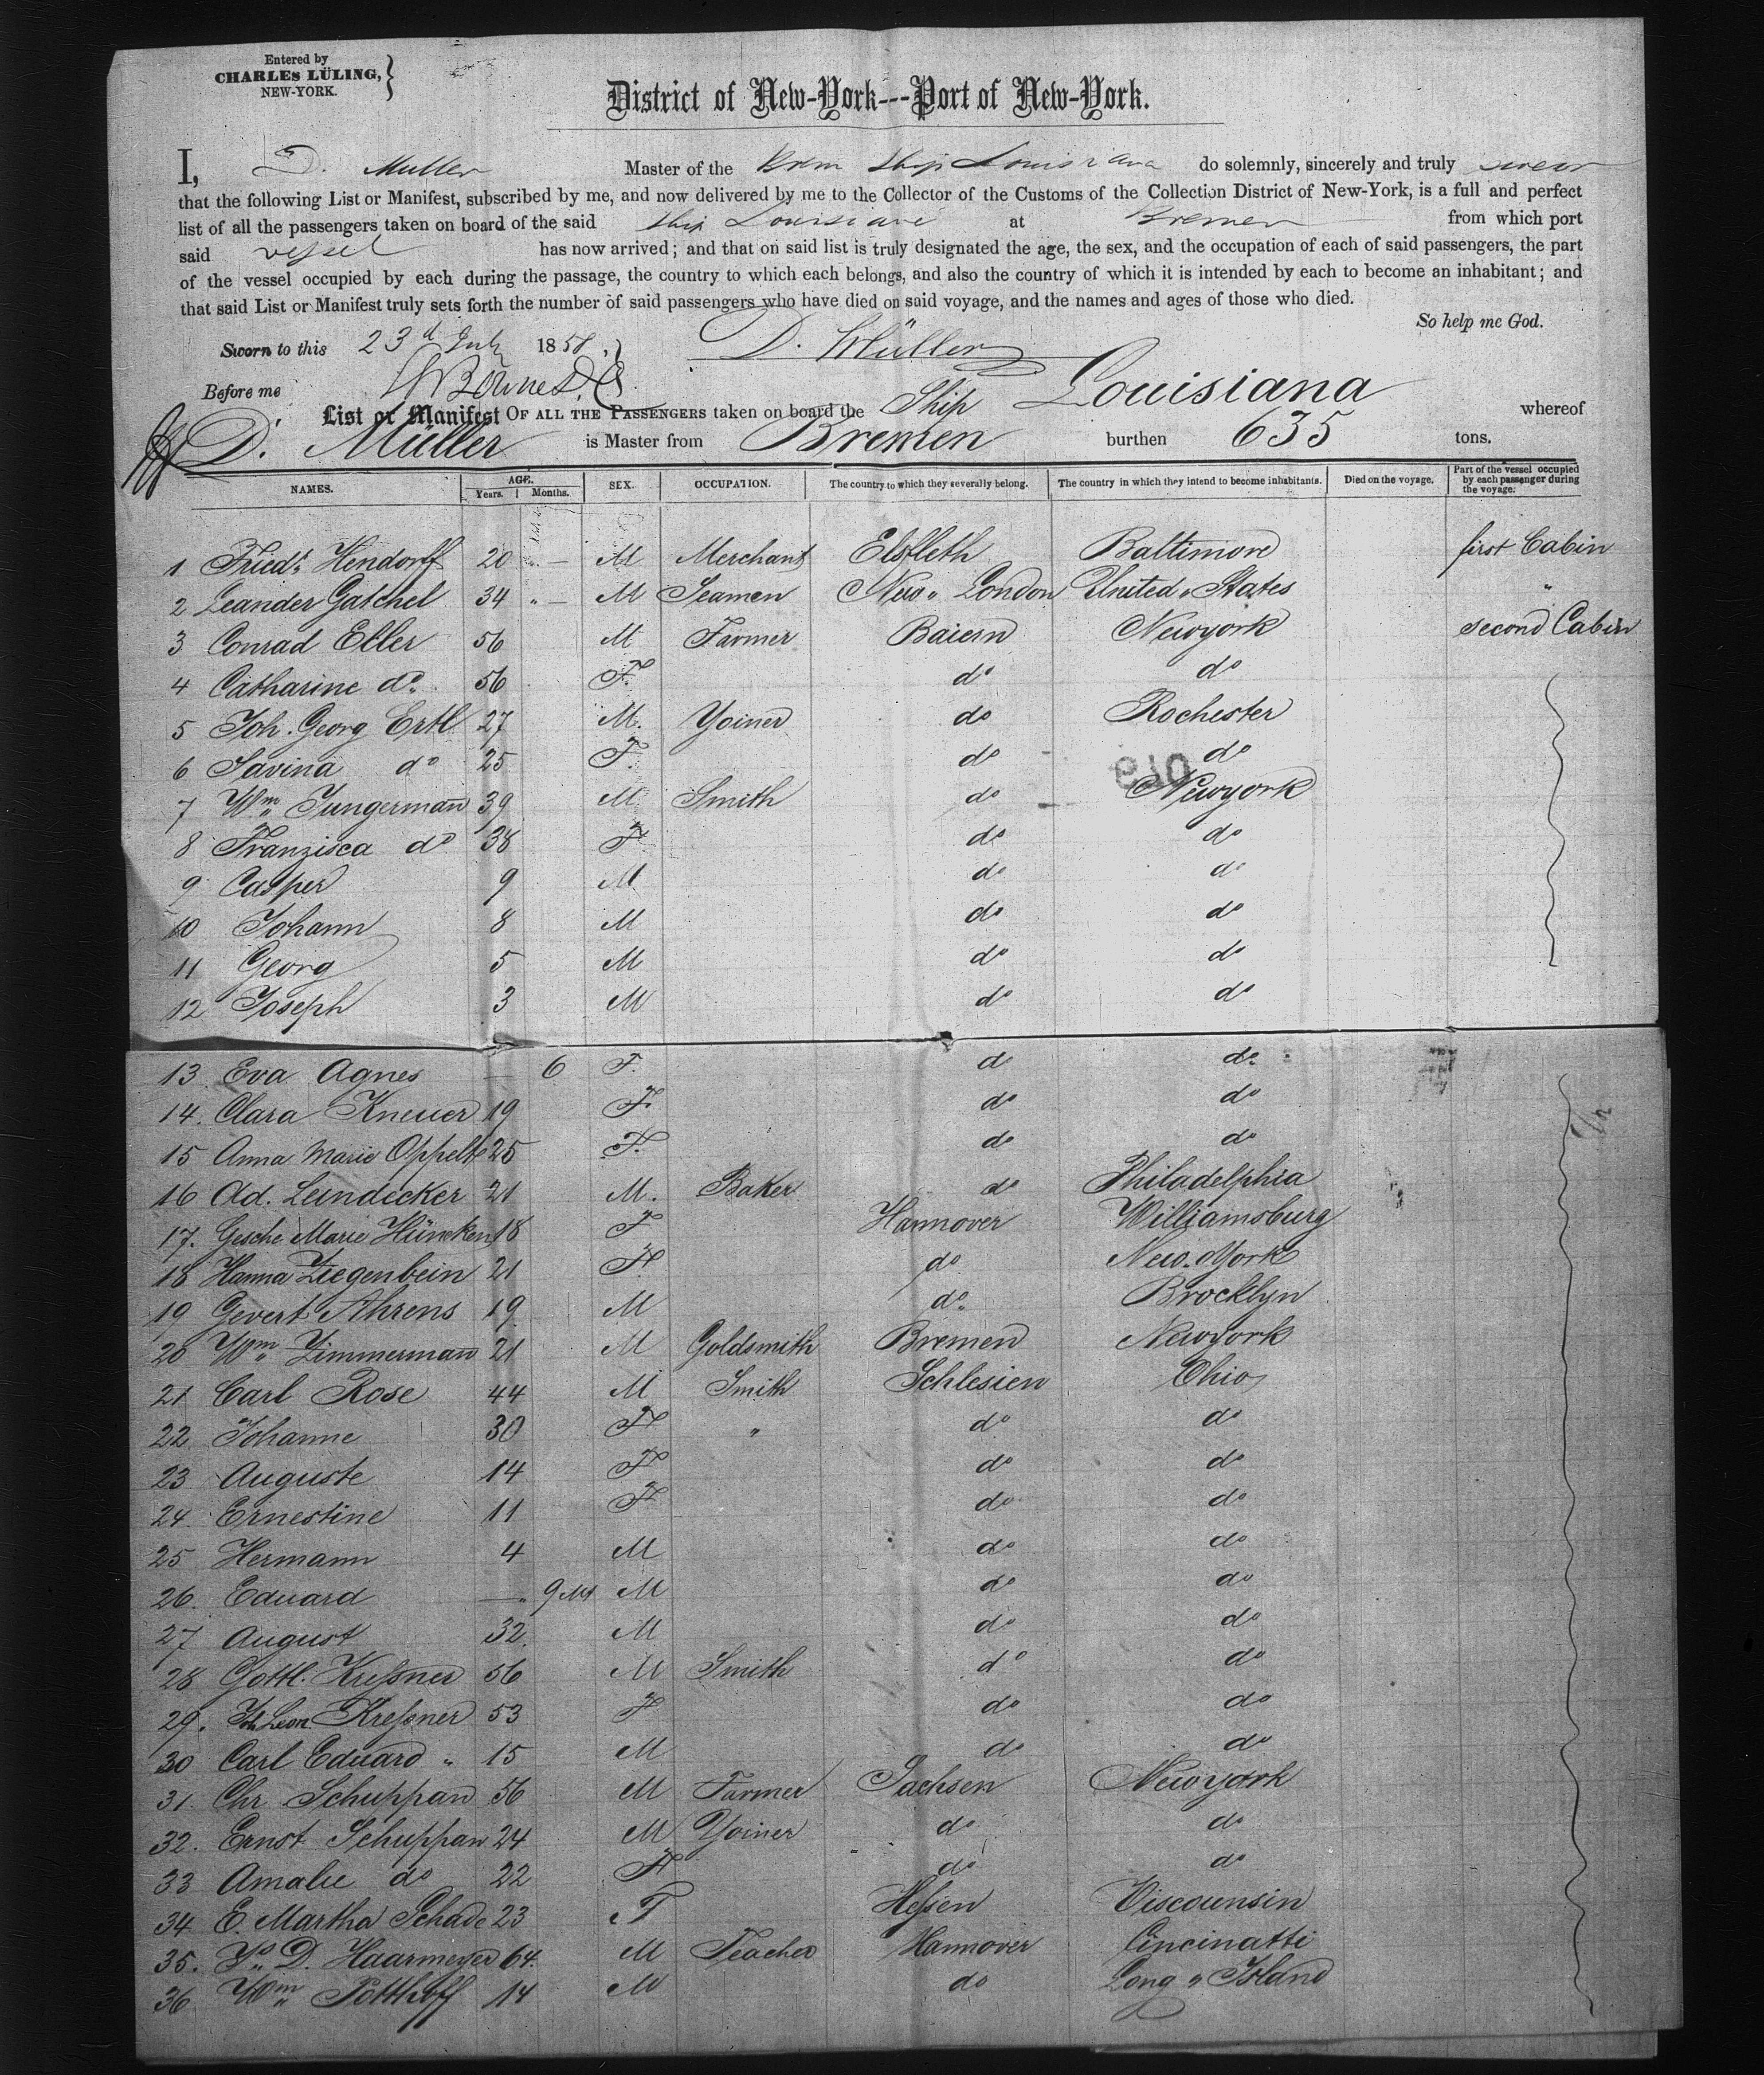 Entered by
CHARLES LÜLING,
NEW-YORK.
District of New-York---Port of New-York.
I, D. Muller Master of the Brem Ship Louisiana do solemnly, sincerely and truly swear
that the following List or Manifest, subscribed by me, and now delivered by me to the Collector of the Customs of the Collection District of New-York, is a full and perfect
list of all the passengers taken on board of the said ship Louisiana at Bremen from which port
said vessel has now arrived; and that on said list is truly designated the age, the sex, and the occupation of each of said passengers, the part
of the vessel occupied by each during the passage, the country to which each belongs, and also the country of which it is intended by each to become an inhabitant; and
that said List or Manifest truly sets forth the number of said passengers who have died on said voyage, and the names and ages of those who died.
So help me God.
Sworn to this 23d July 1858. D. Müller
Before me
List or Manifest OF ALL THE PASSENGERS taken on board the Ship Louisiana whereof
D. Müller is Master from Bremen burthen 635 tons.
NAMES. AGE. Years. Months. SEX. OCCUPATION. The country to which they severally belong. The country in which they intend to become inhabitants. Died on the voyage. Part of the vessel occupied by each passenger during the voyage.
1 Friedr. Hendorff 20 " — M Merchant Elsfleth Baltimore first Cabin
2 Leander Gatchel 34 " — M Seamen New " London United " States "
3 Conrad Eller 56 M Farmer Baiern Newyork second Cabin
4 Catharine do. 56 F. do do
5 Joh. Georg Ertl 27 M. Yoiner do Rochester
6 Savina do 25 F. do do
7 Wm. Jungerman̄ 39 M Smith do Newyork
8 Franzisca do 38 F do do
9 Casper 9 M do do
10 Johann 8 M do do
11 Georg 5 M do do
12 Joseph 3 M do do
13. Eva Agnes — 6 F. do do.
14. Clara Kneuer 19 F. do do
15 Anna Marie Oppelt 25 F. do do
16 Ad. Leindecker 21 M. Baker do Philadelphia
17. Gesche Marie Hüncken 18 F Hannover Williamsburg
18 Hanna Ziegenbein 21 F. do New-York
19 Gevert Ahrens 19 M do. Brocklyn
20 Wm. Zimmerman̄ 21 M Goldsmith Bremen Newyork
21 Carl Rose 44 M Smith Schlesien Ohio
22 Johanne 30 F " do do
23 Auguste 14 F do do
24. Ernestine 11 F do do
25 Hermann 4 M do do
26. Eduard — 9 Mt M do do
27 August 32 M do do
28 Gottl. Kreſsner 56 M Smith do do
29. Kreſsner 53 F do do
30 Carl Eduard " 15 M do do
31. Chr. Schuppan 56 M Farmer Sachsen Newyork
32. Ernst Schuppan 24 M Yoiner do do
33 Amalie do 22 F do do
34 E. Martha Schade 23 F Heſsen Viscounsin
35. D. Haarmeyer 64. M Teacher Hannover Cincinatti
36 Wm. Potthoff 14 M do Long " Island